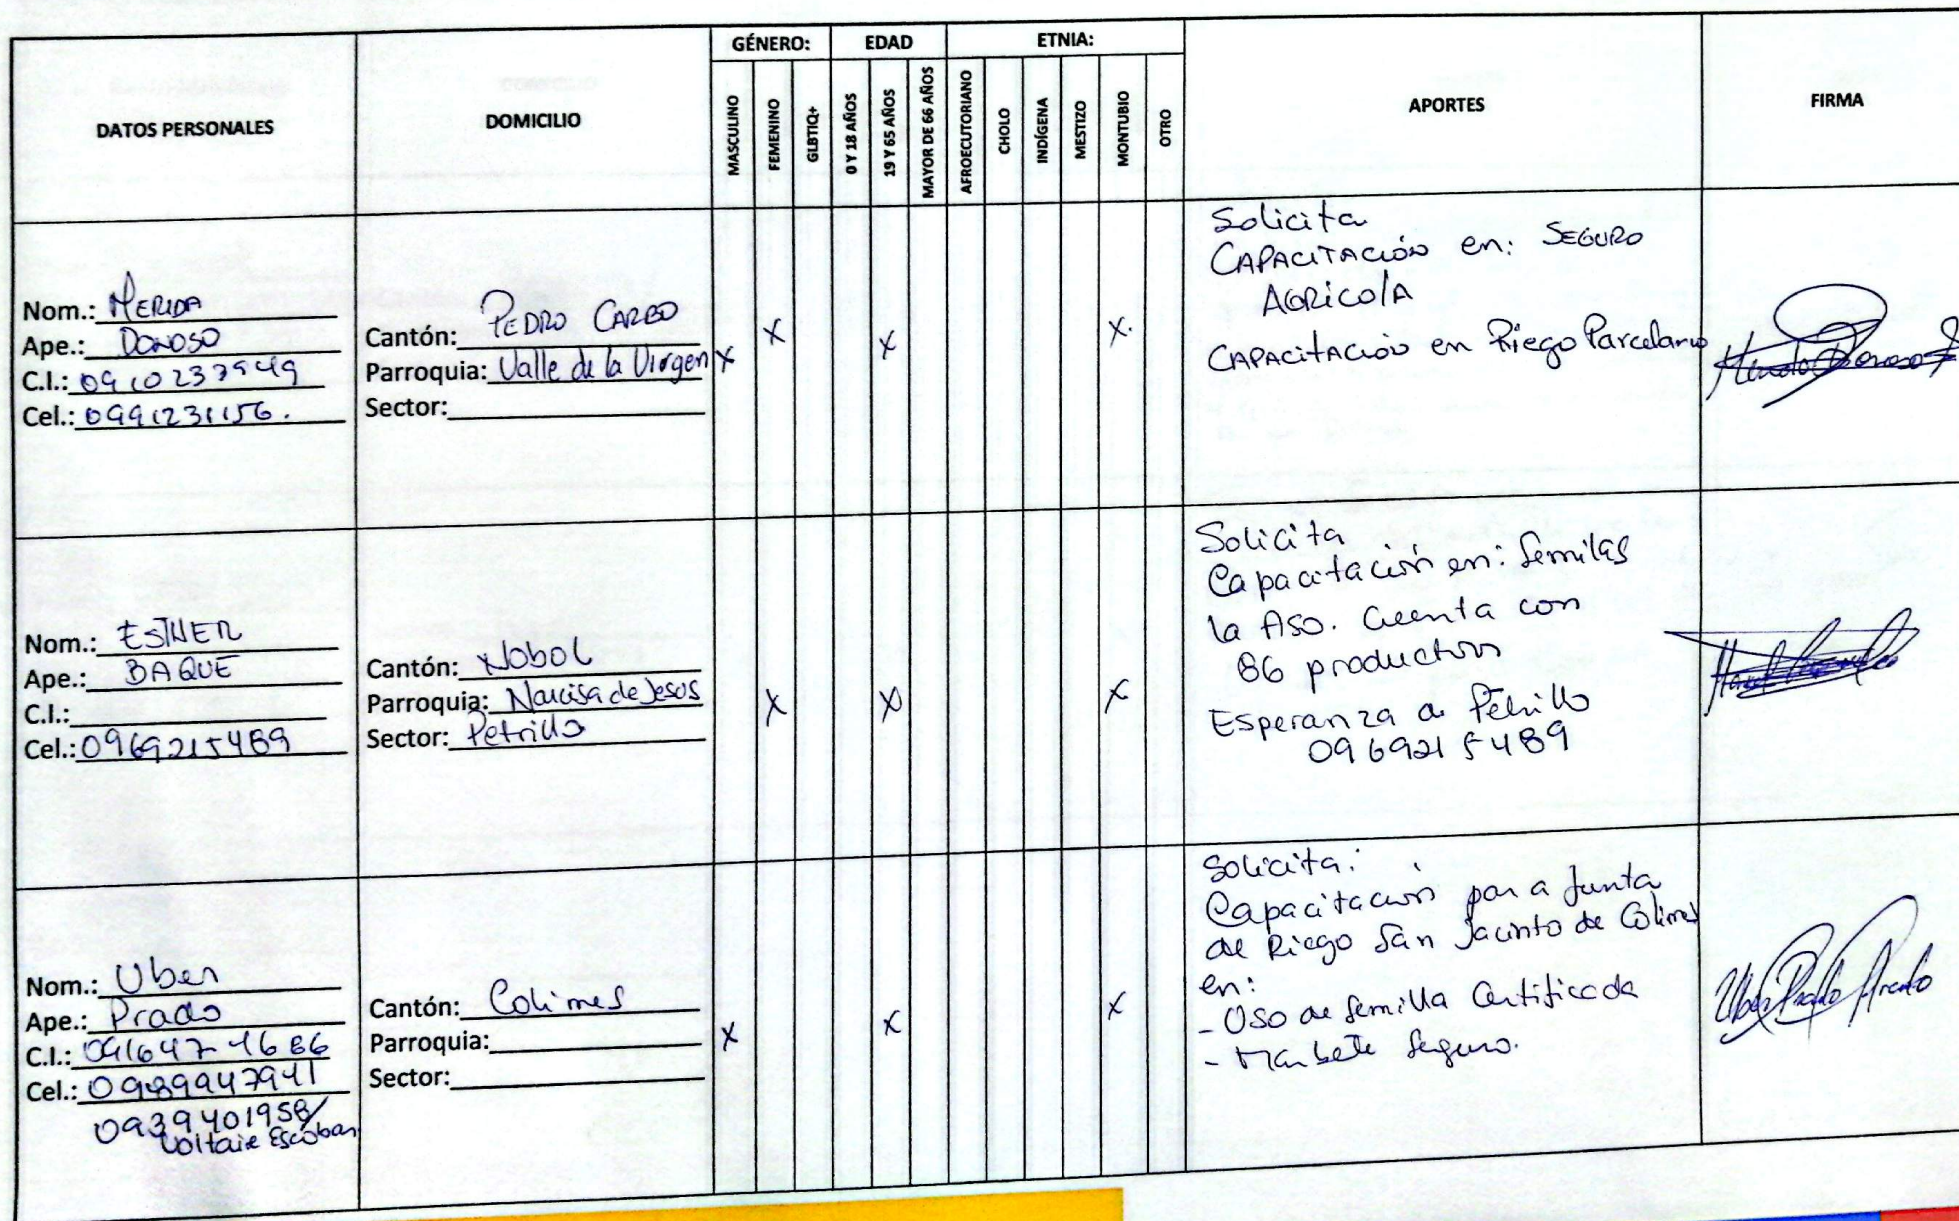 DATOS PERSONALES
DOMICILIO
GÉNERO:
MASCULINO
FEMENINO
GLBTIQ+
EDAD
0 Y 18 AÑOS
19 Y 65 AÑOS
MAYOR DE 66 AÑOS
ETNIA:
AFROECUTORIANO
CHOLO
INDÍGENA
MESTIZO
MONTUBIO
OTRO
APORTES
FIRMA
Nom.: MERIDA
Ape.: DONOSO
C.I.: 0910237949
Cel.: 0991231156.
Cantón: PEDRO CARBO
Parroquia: Valle de la Virgen
Sector:
X
X
X
X.
Solicita
CAPACITACIÓN en: SEGURO
AGRICOLA
CAPACITACIÓN en Riego Parcelario
Nom.: ESTHER
Ape.: BAQUE
C.I.:
Cel.: 0969215489
Cantón: Nobol
Parroquia: Narcisa de Jesus
Sector: Petrillo
X
X
X
Solicita
Capacitación en: Semillas
la Aso. Cuenta con
86 productores
Esperanza de Petrillo
0969215489
Nom.: Uber
Ape.: Prado
C.I.: 0916474686
Cel.: 0989947941
0939401958/
Voltaire Escobar
Cantón: Colimes
Parroquia:
Sector:
X
X
X
Solicita:
Capacitación para Junta
de Riego San Jacinto de Colimes
en:
- Uso de Semilla Certificada
- Marbete Seguro.
Uber Prado Prado